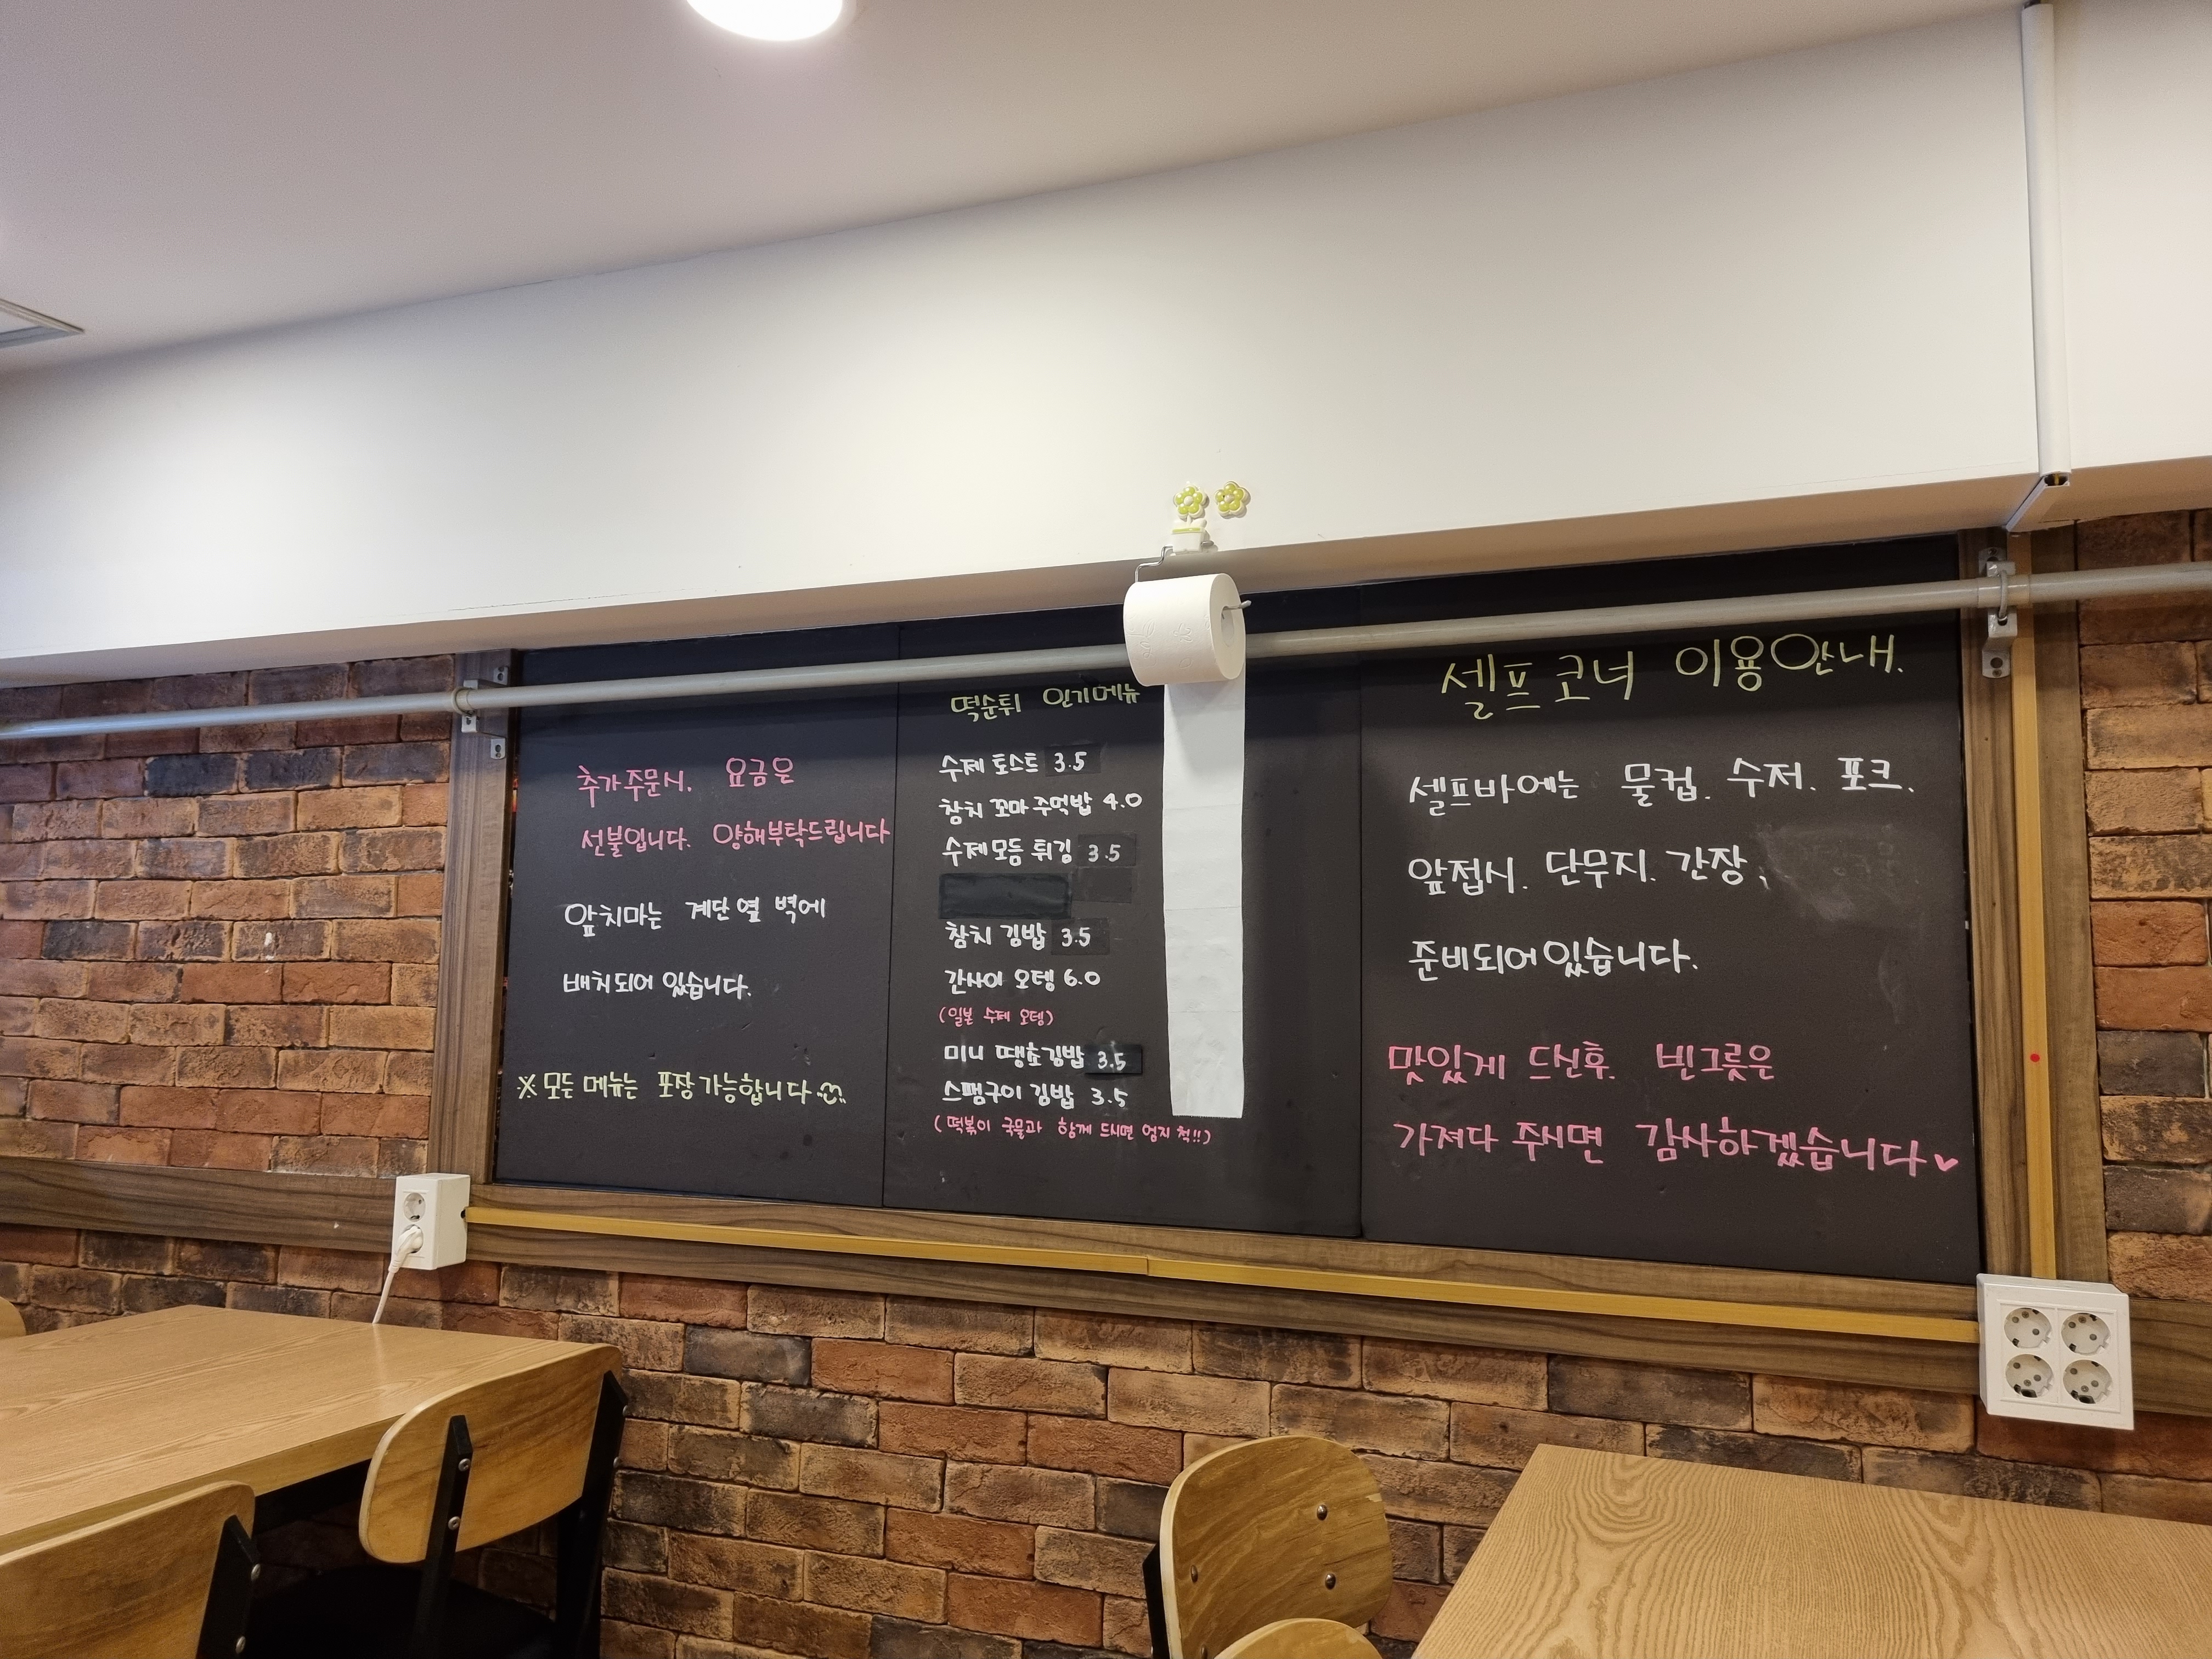 추가주문시. 요금은
선불입니다. 양해부탁드립니다
앞치마는 계단옆 벽에
배치되어 있습니다.
※ 모든 메뉴는 포장가능합니다
떡순튀 인기메뉴
수제 토스트 3.5
참치 꼬마 주먹밥 4.0
수제모듬 튀김 3.5
참치 김밥 3.5
간사이 오뎅 6.0
(일본 수제 오뎅)
미니 땡초김밥 3.5
스팸구이 김밥 3.5
(떡볶이 국물과 함께 드시면 엄지 척!!)
셀프코너 이용안내.
셀프바에는 물컵. 수저. 포크.
앞접시. 단무지. 간장,
준비되어있습니다.
맛있게 드신후. 빈그릇은
가져다 주시면 감사하겠습니다♥